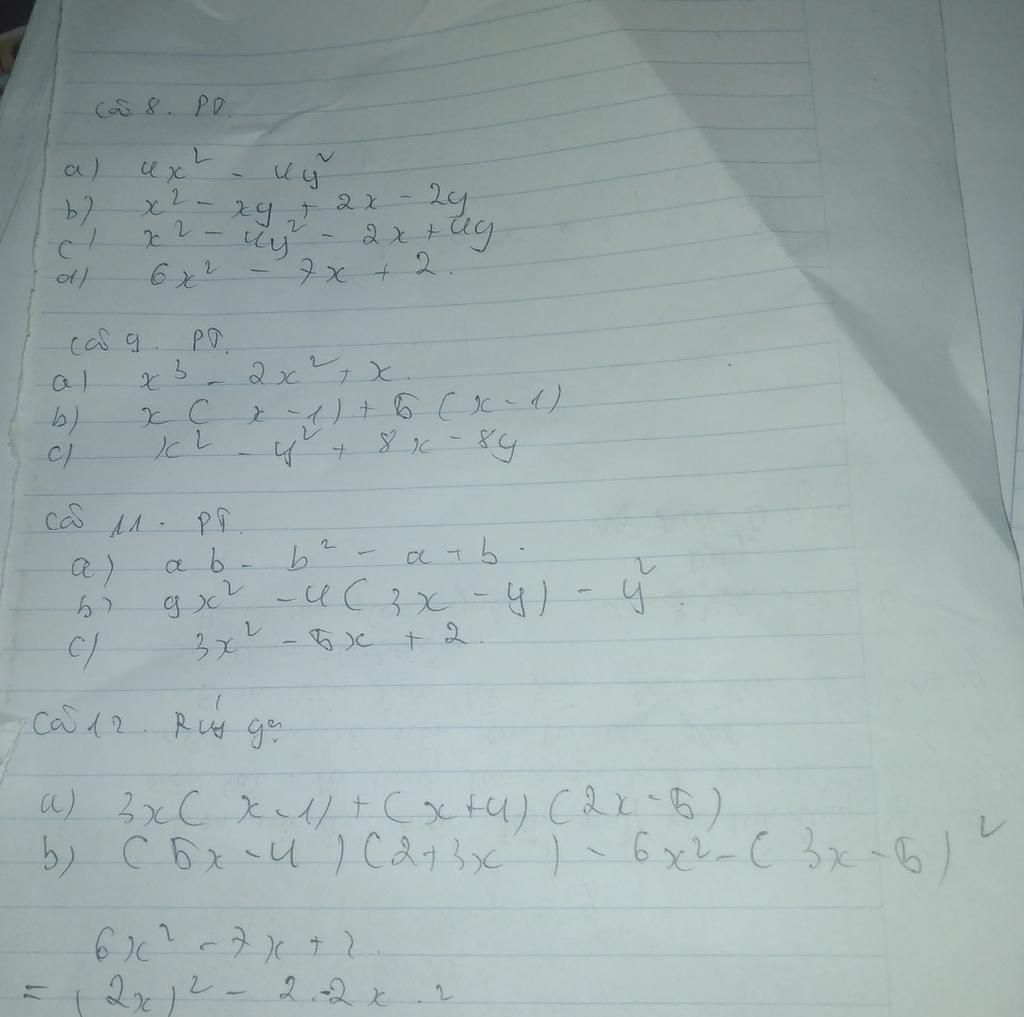 Câu 8. PT.
a) 4x² - 4y²
b) x² - xy + 2x - 2y
c) x² - 4y² - 2x + 4y
d) 6x² - 7x + 2.
Câu 9. PT.
a) x³ - 2x² + x.
b) x( x - 1) + 5(x - 1)
c) x² - y² + 8x - 8y
Câu 11. PT.
a) ab - b² - a + b.
b) 9x² - 4(3x - y) - y².
c) 3x² - 5x + 2.
Câu 12. Rút gọn
a) 3x( x - 1) + (x + 4)(2x - 5)
b) (5x - 4)(2 + 3x ) - 6x² - (3x - 5)²
6x² - 7x + 2.
= (2x)² - 2.2x . 2